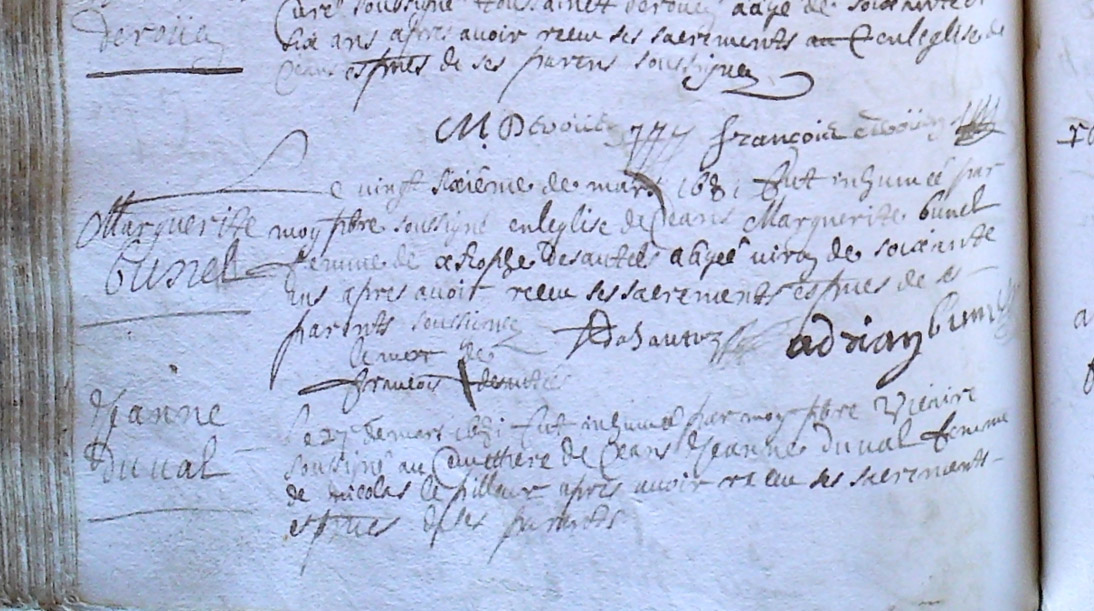 Derouen
Curé soussigné Toussainctt Derouen aagé de soixante et
six ans apres avoir receu ses sacrements en leglise de
Ceans espnes de ses parens soussignez
M. Deroüen françois
Le vingt sixiéme de mars 1681 fut inhumée par
Marguerite Bunel
moy pbre soussigné en leglise de Ceans Marguerite bunel
femme de Desautels aagée viron de soixante
ans apres avoir receu ses sacrements espnes de
parents soussignez adrian bunel
le merc de
françois desautels
Jeanne Duval
le 27 de mars 1681 fut inhumée par moy pbre Vicaire
soussigné au Cimettiere de Ceans Jeanne duval femme
de nicolas le pilleur apres avoir receu ses sacrements
espnes de ses parents